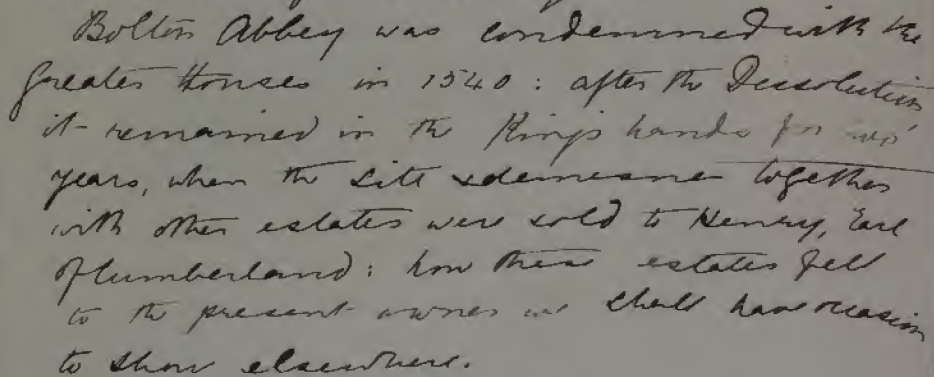 Bolton Abbey was condemned with the
greater Houses in 1540: after the Dissolution
it remained in the King's hands for two
years, when the site & demesne together
with other estates were sold to Henry, Earl
of Cumberland: how these estates fell
to the present owner we shall have occasion
to show elsewhere.